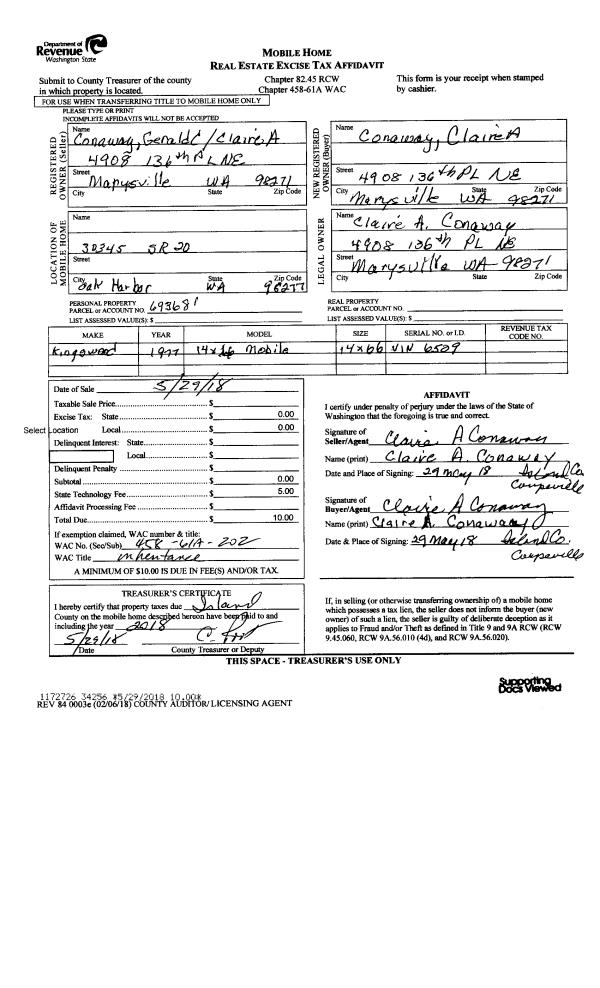 Department of
Revenue
Washington State
MOBILE HOME
REAL ESTATE EXCISE TAX AFFIDAVIT
Submit to County Treasurer of the county
in which property is located.
Chapter 82.45 RCW
Chapter 458-61A WAC
This form is your receipt when stamped
by cashier.
FOR USE WHEN TRANSFERRING TITLE TO MOBILE HOME ONLY
PLEASE TYPE OR PRINT
INCOMPLETE AFFIDAVITS WILL NOT BE ACCEPTED
REGISTERED
OWNER (Seller)
Name
Conaway, Gerald C / Claire A
4908 136th Pl NE
Street
Marysville WA 98271
City State Zip Code
NEW REGISTERED
OWNER (Buyer)
Name
Conaway, Claire A
Street 4908 136th PL NE
City State Zip Code
Marysville WA 98271
LOCATION OF
MOBILE HOME
Name
30345 SR 20
Street
City State Zip Code
Oak Harbor WA 98277
LEGAL OWNER
Name
Claire A. Conaway
4908 136th PL NE
Street
Marysville WA 98271
City State Zip Code
PERSONAL PROPERTY
PARCEL or ACCOUNT NO. 693681
LIST ASSESSED VALUE(S): $
REAL PROPERTY
PARCEL or ACCOUNT NO.
LIST ASSESSED VALUE(S): $
MAKE YEAR MODEL SIZE SERIAL NO. or I.D. REVENUE TAX CODE NO.
Kingswood 1977 14x66 Mobile 14x66 VIN 6509
Date of Sale 5/29/18
Taxable Sale Price $
Excise Tax: State $ 0.00
Select Location Local $ 0.00
Delinquent Interest: State $
Local $
Delinquent Penalty $
Subtotal $ 0.00
State Technology Fee $ 5.00
Affidavit Processing Fee $
Total Due $ 10.00
If exemption claimed, WAC number & title:
WAC No. (Sec/Sub) 458-61A-202
WAC Title inheritance
A MINIMUM OF $10.00 IS DUE IN FEE(S) AND/OR TAX.
AFFIDAVIT
I certify under penalty of perjury under the laws of the State of
Washington that the foregoing is true and correct.
Signature of
Seller/Agent Claire A Conaway
Name (print) Claire A. Conaway
Date and Place of Signing: 29 May 18 Island Co.
Coupeville
Signature of
Buyer/Agent Claire A Conaway
Name (print) Claire A. Conaway
Date & Place of Signing: 29 May 18 Island Co.
Coupeville
TREASURER'S CERTIFICATE
I hereby certify that property taxes due Island
County on the mobile home described hereon have been paid to and
including the year 2018
5/29/18
Date County Treasurer or Deputy
If, in selling (or otherwise transferring ownership of) a mobile home
which possesses a tax lien, the seller does not inform the buyer (new
owner) of such a lien, the seller is guilty of deliberate deception as it
applies to Fraud and/or Theft as defined in Title 9 and 9A RCW (RCW
9.45.060, RCW 9A.56.010 (4d), and RCW 9A.56.020).
THIS SPACE - TREASURER'S USE ONLY
Supporting
Docs Viewed
1172726 34256 *5/29/2018 10.00*
REV 84 0003e (02/06/18) COUNTY AUDITOR/ LICENSING AGENT